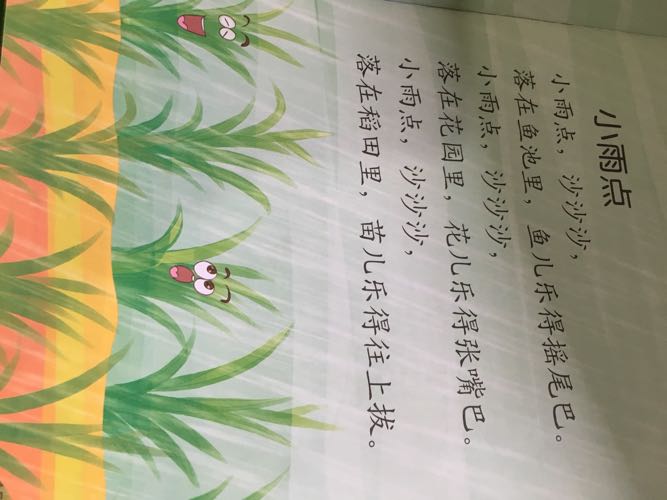 小雨点
小雨点，沙沙沙，
落在鱼池里，鱼儿乐得摇尾巴。
小雨点，沙沙沙，
落在花园里，花儿乐得张嘴巴。
小雨点，沙沙沙，
落在稻田里，苗儿乐得往上拔。